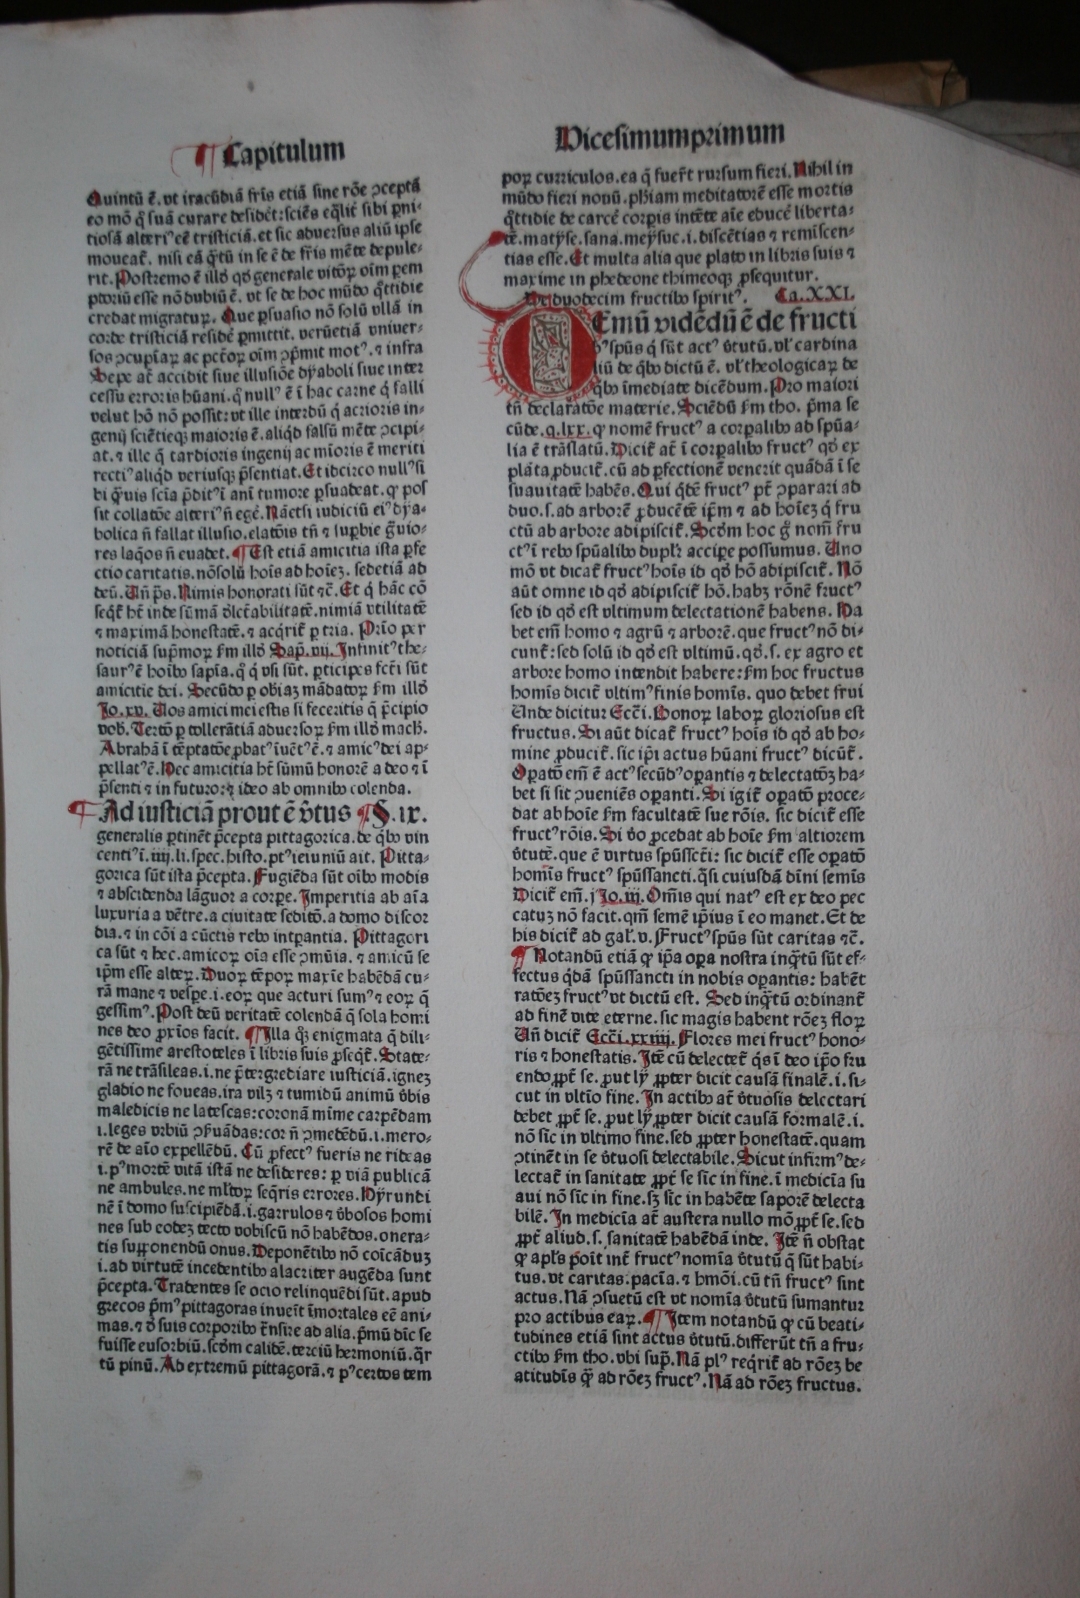 ¶ Capitulum
Quintū ē. vt iracūdiā fr̄is etiā sine rōe ↄceptā
eo mō q̇ suā curare desidēt: sciēs eq̄lit̄ sibi p̄ni⸗
tiosā alteri⁹ eē tristiciā. et sic aduersus aliū ipse
moueat̄. nisi eā q̄tū in se ē de fr̄is mēte depule⸗
rit. Postremo ē illd̄ qd̄ generale vitioꝝ oīm ꝑem
ptoriū esse nō dubiū ē. vt se de hoc mūdo q̄ttidie
credat migraturꝝ. Que ꝑsuasio nō solū vllā in
corde tristiciā residē ꝑmittit. verūetiā vniuer⸗
sos ↄcupiaꝝ ac pctōꝝ oīm ↄp̄mit mot⁹. ⁊ infra
Sepe at̄ accidit siue illusiōe dyaboli siue inter
cessu erroris hūani. q̇ null⁹ ē ī hac carne q̇ falli
velut hō nō possit: vt ille interdū q̇ acrioris in⸗
genij sciētieqꝫ maioris ē. aliqd̄ falsū mēte ↄcipi⸗
at. ⁊ ille q̇ tardioris ingenij ac mīoris ē meriti
recti⁹ aliqd̄ veriusqꝫ p̄sentiat. Et idcirco null⁹ si
bi q̄uis scīa p̄dit⁹ ī anī tumore ꝑsuadeat. ꝙ pos
sit collatōe alteri⁹ n̄ egē. Nā etsi iudiciū ei⁹ dya⸗
bolica n̄ fallat illusio. elatōis tn̄ ⁊ suꝑbie ḡuio⸗
res laq̄os n̄ euadet. ¶ Est etiā amicitia ista ꝑfe
ctio caritatis. nōsolū hoīs ad hoīeꝫ. sedetiā ad
deū. Un̄ ps̄. Nimis honorati sūt ⁊c̄. Et q̇ hāc cō
seq̄t̄ ht̄ inde sūmā dl̄ectabilitatē. nimiā vtilitatē
⁊ maximā honestatē. ⁊ acq̄rit̄ ꝑ tria. Prīo per
noticiā sup̄moꝝ ẜm illd̄ Sap. vij. Infinit⁹ the⸗
saur⁹ ē hoībꝰ sapīa. q̄ q̇ vsi sūt. ꝑticipes fcti sūt
amicitie dei. Secūdo ꝑ obīaꝫ mādatoꝝ ẜm illd̄
Jo. xv. Uos amici mei estis si feceritis q̄ p̄cipio
vob̄. Tertō ꝑ tollerātiā aduersoꝝ ẜm illd̄ mach̄.
Abrahā ī tēptatōe ꝓbat⁹ īuēt⁹ ē. ⁊ amic⁹ dei ap⸗
pellat⁹ ē. Hec amicitia ht̄ sūmū honorē a deo ⁊ ī
p̄senti ⁊ in futuro: ⁊ ideo ab omnibꝰ colenda.
Ad iusticiā prout ē v̄tus ¶ S. ix.
generalis ꝑtinēt p̄cepta pittagorica. de q̇bꝰ vin
centi⁹ ī. iiij. li. spec. histo. pt⁹ ieiuniū ait. Pitta⸗
gorica sūt ista p̄cepta. Fugiēda sūt oībꝰ modis
⁊ abscidenda lāguor a corꝑe. Imperitia ab aīa
luxuria a vētre. a ciuitate seditō. a domo discor
dia. ⁊ in cōi a cūctis rebꝰ intꝑantia. Pittagori
ca sūt ⁊ hec. amicoꝝ oīa esse ↄmūia. ⁊ amicū se
ip̄m esse alteꝝ. Duoꝝ tēpoꝝ maxīe habēdā cu⸗
rā mane ⁊ vesꝑe. i. eoꝝ que acturi sum⁹ ⁊ eoꝝ q̄
gessim⁹. Post deū veritatē colendā q̄ sola homi
nes deo ꝓxīos facit. ¶ Illa q̄ꝫ enigmata q̄ dili⸗
gētissime arestoteles ī libris suis ꝓseq̄t̄. State⸗
rā ne trāsileas. i. ne p̄tergrediare iusticiā. igneꝫ
gladio ne foueas. ira vilꝫ ⁊ tumidū animū v̄bis
maledicis ne latescas: coronā mīme carpēdam
ı. leges vrbiū ↄẜuādas: cor n̄ ↄmedēdū. ı. mero⸗
rē de aīo expellēdū. Cū ꝓfect⁹ fueris ne rideas
ı. p⁹ mortē vitā istā ne desideres: ꝑ viā publicā
ne ambules. ne ml̄toꝝ seq̄ris errores. Hyrundi
nē ī domo suscipiēdā. i. garrulos ⁊ v̄bosos homi
nes sub codeꝫ tecto vobiscū nō habēdos. onera⸗
tis suꝑponendū onus. Deponētibꝰ nō coīcāduꝫ
i. ad virtutē incedentibꝰ alacriter augēda sunt
p̄cepta. Tradentes se ocio relinquēdi sūt. apud
grecos p̄m⁹ pittagoras inueīt īmortales eē ani⸗
mas. ⁊ d̄ suis corporibꝰ trn̄sire ad alia. p̄mū dīc se
fuisse eusorbiū. scd̄m calidē. terciū hermoniū. q̄r
tū pinū. Ad extremū pittagorā. ⁊ p⁹ certos tem
Vicesimumprimum
poꝝ curriculos. ea q̄ fuer̄t rursum fieri. Nihil in
mūdo fieri nouū. ph̄iam meditatōrē esse mortis
q̄ttidie de carcē corꝑis intēte aīe educē liberta⸗
tē. matyse. sana. meysuc. i. discētias ⁊ remiscen⸗
tias esse. Et multa alia que plato in libris suis ⁊
maxime in phedeone thimeoqꝫ ꝓsequitur.
De duodecim fructibꝰ spirit⁹. Ca. XXI.
Emū vidēdū ē de fructi
b⁹ spūs q̇ sūt act⁹ v̄tutū. vl̄ cardina
liū de q̇bꝰ dictū ē. vl̄ theologicaꝝ de
q̇bꝰ īmediate dicēdum. Pro maiori
tn̄ declaratōe materie. Sciēdū ẜm tho. p̄ma se
cūde. q. lxx. ꝙ nomē fruct⁹ a corꝑalibꝰ ad spūa⸗
lia ē trāslatū. Dicit̄ at̄ ī corꝑalibꝰ fruct⁹ qd̄ ex
plāta ꝓducit̄. cū ad ꝑfectionē venerit quādā ī se
suauitatē habēs. Qui q̇dē fruct⁹ pt̄ ↄparari ad
duo. s. ad arborē ꝓducētē ip̄m ⁊ ad hoīeꝫ q̇ fru
ctū ab arbore adipiscit̄. Scd̄m hoc g̊ nom̄ fru
ct⁹ ī rebꝰ spūalibꝰ duplr̄ accipe possumus. Uno
mō vt dicat̄ fruct⁹ hoīs id qd̄ hō adipiscit̄. Nō
aūt omne id qd̄ adipiscit̄ hō. habꝫ rōnē fruct⁹
sed id qd̄ est vltimum delectationē habens. Ha
bet em̄ homo ⁊ agrū ⁊ arborē. que fruct⁹ nō di⸗
cunt̄: sed solū id qd̄ est vltimū. qd̄. s. ex agro et
arbore homo intendit habere: ẜm hoc fructus
homīs dicit̄ vltim⁹ finis homīs. quo debet frui
Unde dicitur Ecc̄i. Bonoꝝ laboꝝ gloriosus est
fructus. Si aūt dicat̄ fruct⁹ hoīs id qd̄ ab ho⸗
mine ꝓducit̄. sic ip̄i actus hūani fruct⁹ dicūt̄.
Oꝑatō em̄ ē act⁹ secūd⁹ oꝑantis ⁊ delectatōꝫ ha⸗
bet si sit ↄueniēs oꝑanti. Si igit̄ oꝑatō proce⸗
dat ab hoīe ẜm facultatē sue rōis. sic dicit̄ esse
fruct⁹ rōis. Si v̊o ꝓcedat ab hoīe ẜm altiorem
v̄tutē. que ē virtus spūsscti: sic dicit̄ esse oꝑatō
homīs fruct⁹ spūssancti. q̄si cuiusdā dīni semīs
Dicit̄ em̄. j Jo. iij. Om̄is qui nat⁹ est ex deo pec
catuꝫ nō facit. qm̄ semē ip̄ius ī eo manet. Et de
his dicit̄ ad gal̄. v. Fruct⁹ spūs sūt caritas ⁊c̄.
¶ Notandū etiā ꝙ ip̄a oꝑa nostra inq̄tū sūt ef⸗
fectus q̇dā spūssancti in nobis oꝑantis: habēt
ratōeꝫ fruct⁹ vt dictū est. Sed inq̄tū ordinant̄
ad finē vite eterne. sic magis habent rōeꝫ floꝝ
Un̄ dicit̄ Ecc̄i. xxiiij. Flores mei fruct⁹ hono⸗
ris ⁊ honestatis. Itē cū delectet̄ q̇s ī deo ip̄o fru
endo ꝓpt̄ se. put ly ꝓpter dicit causā finalē. i. si⸗
cut in vltīo fine. In actibꝰ at̄ v̄tuosis delectari
debet ꝓpt̄ se. put ly ꝓpter dicit causā formalē. i.
nō sic in vltimo fine. sed ꝓpter honestatē. quam
ↄtinēt in se v̄tuosi delectabile. Sicut infirm⁹ de⸗
lectat̄ in sanitate ꝓpt̄ se sic in fine. i medicīa su
aui nō sic in fine. sꝫ sic in habēte saporē delecta
bilē. In medicīa at̄ austera nullo mō ꝓpt̄ se. sed
ꝓpt̄ aliud. s. sanitatē habēdā inde. Itē n̄ obstat
ꝙ apl̄s poīt int̄ fruct⁹ nomīa v̄tutū q̄ sūt habi⸗
tus. vt caritas. pacīa. ⁊ hmōi. cū tn̄ fruct⁹ sint
actus. Nā ↄsuetū est vt nomīa v̄tutū sumantur
pro actibus eaꝝ. ¶ Item notandū ꝙ cū beati⸗
tudines etiā sint actus v̄tutū. differūt tn̄ a fru⸗
ctibꝰ ẜm tho. vbi sup̄. Nā pl⁹ req̄rit̄ ad rōeꝫ be
atitudīs q̄ꝫ ad rōeꝫ fruct⁹. Nā ad rōeꝫ fructus.